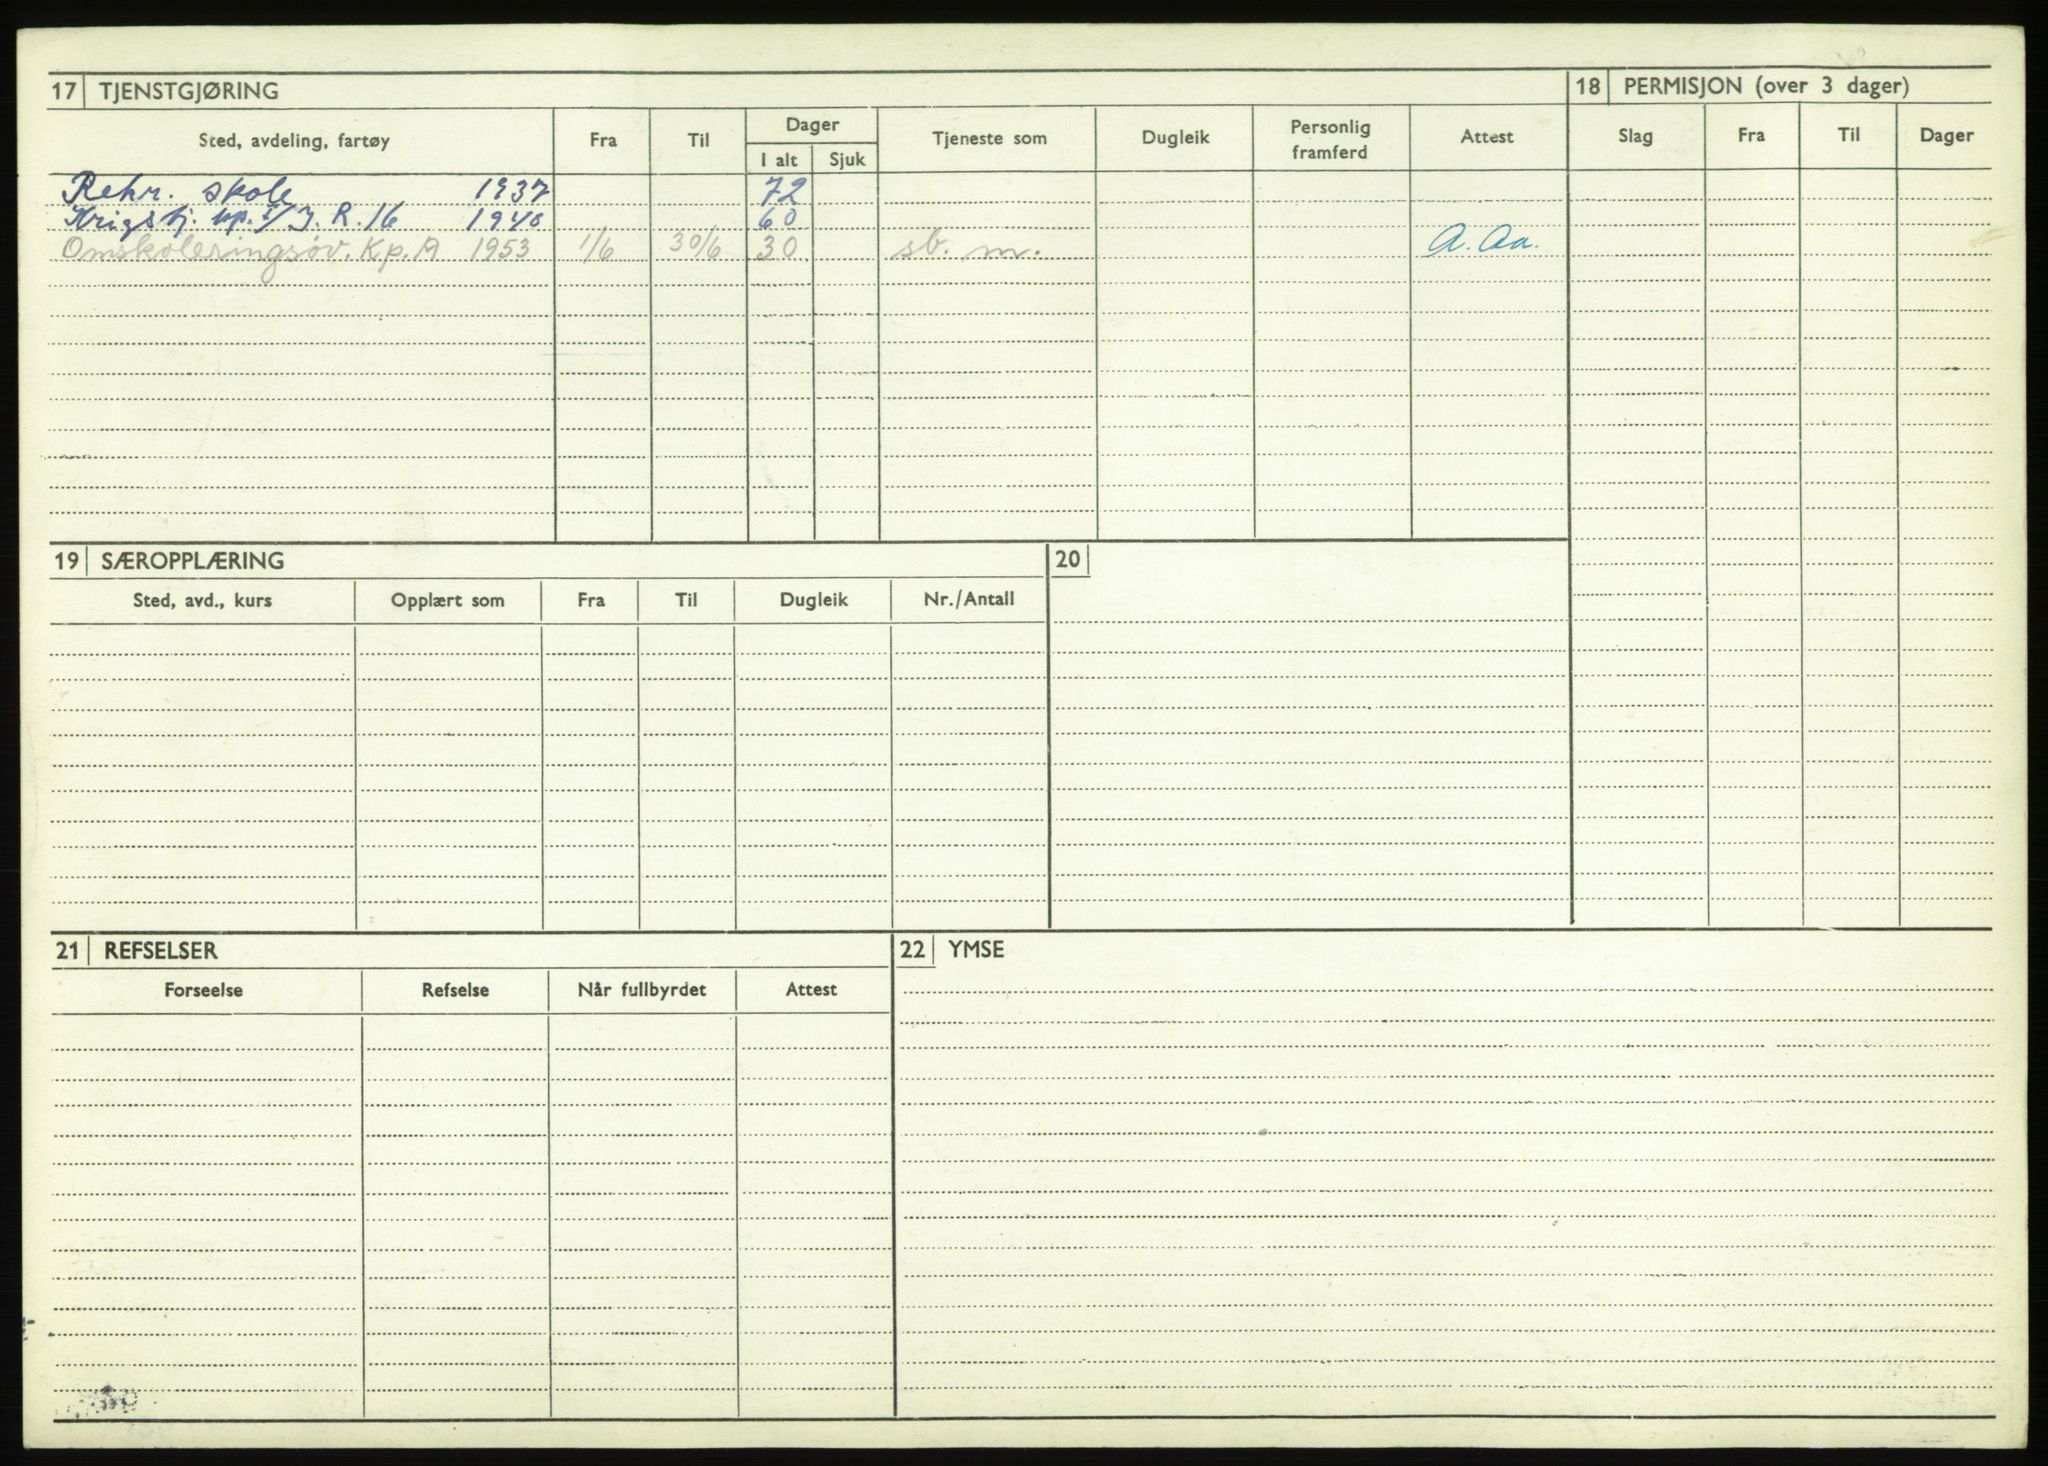 17 TJENSTGJØRING
18 PERMISJON (over 3 dager)
Sted, avdeling, fartøy Fra Til Dager Tjeneste som Dugleik Personlig framferd Attest Slag Fra Til Dager
I alt Sjuk
Rekr. skole 1937 72
Krigstj. kp. I/J. R. 16 1940 60
Omskoleringsøv. Kp. A 1953 1/6 30/6 30 sb. m. A. Aa.
19 SÆROPPLÆRING
20
Sted, avd., kurs Opplært som Fra Til Dugleik Nr./Antall
21 REFSELSER
22 YMSE
Forseelse Refselse Når fullbyrdet Attest